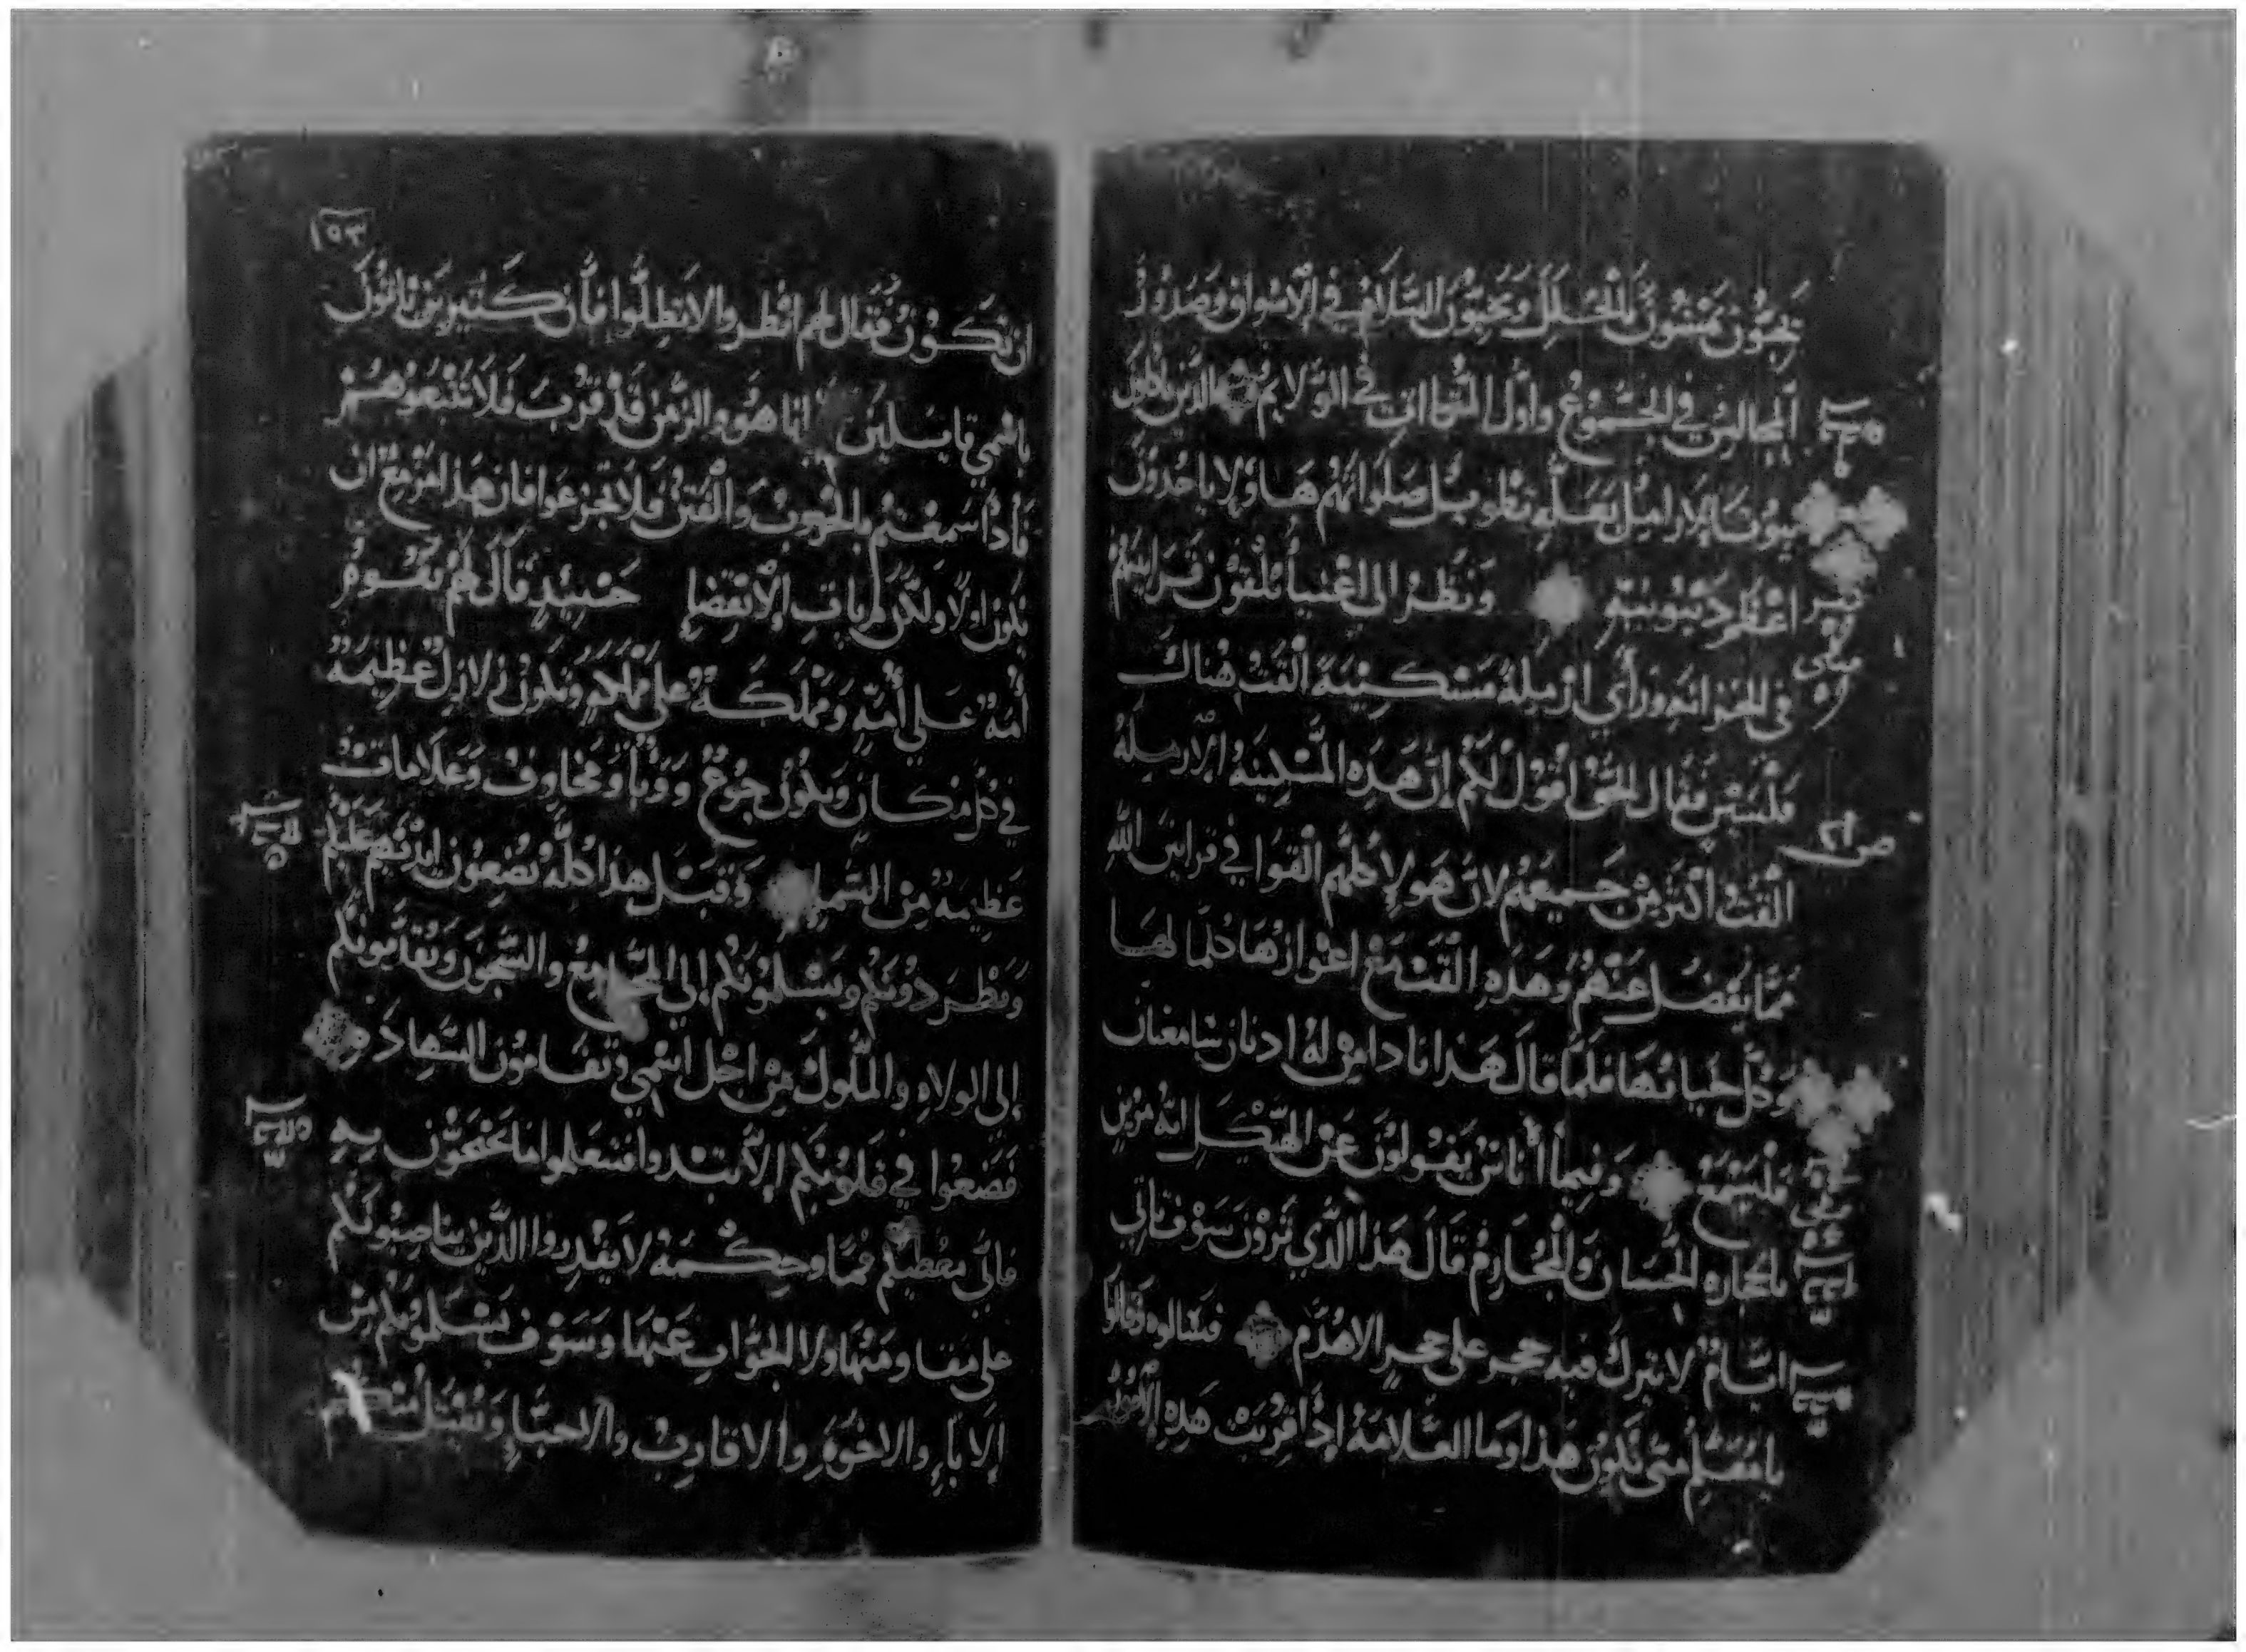 يحبون يمشون بالحلل ويحبون السلام في الاسواق وصدور
المجالس في الجموع واول المتكاات في الولايم الذين ياكلون
بيوت الارامل بعلة تطويل صلواتهم هاولا ياخدون
اعظم دينونة ونظر الى اغنيا يلقون قرابينهم
في الخزانه وراي ارمله مسكينة القت هناك
فلسين فقال الحق اقول لكم ان هذه المسكينه الارمله
القت اكثر من جميعهم لان هولا كلهم القوا في قرابين الله
مما يفضل عنهم وهذه القت مع اعوازها كلما لها
وكل حياتها فلما قال هذا نادا من له ادنان سامعتان
فليسمع وفيما اناس يقولون عن الهيكل انه مزين
بالحجاره الحسان والمحارم قال هذا الذي ترون سوف تاتي
ايام لا يترك فيه حجر على حجر الا هدم فسالوه وقالوا
يا معلم متى يكون هذا وما العلامة إذا اقربت هذه الامور
ص ٢١
١٥٣
ان تكون فقال لهم انظروا لا تضلوا فان كثيرين ياتون
باسمي قايلين انا هو والزمن قد قرب فلا تتبعوهم
فاذا سمعتم بالحروب والفتن فلا تجزعوا فان هذا مزمع ان
يكون اولا ولكن لم يات الانقضا حينيذ قال لهم تقوم
أمة على أمة ومملكة على مملكة وتكون زلازل عظيمة
في كل مكان ويكون جوع ووبا ومخاوف وعلامات
عظيمة من السما وقبل هذا كله يضعون ايديهم عليكم
ويطردونكم ويسلمونكم إلى المجامع والسجون وتقدمونكم
إلى الولاه والملوك من اجل اسمي وتقامون الشهاده
فضعوا في قلوبكم الا تبتدوا فتتعلموا ما تحتجون به
فاني معطيكم فما وحكمة لا يقدروا الذين يناصبونكم
على مقاومتها ولا الجواب عنها وسوف يسلمونكم من
الابا والاخوة والاقارب والاحبا ويقتل منكم